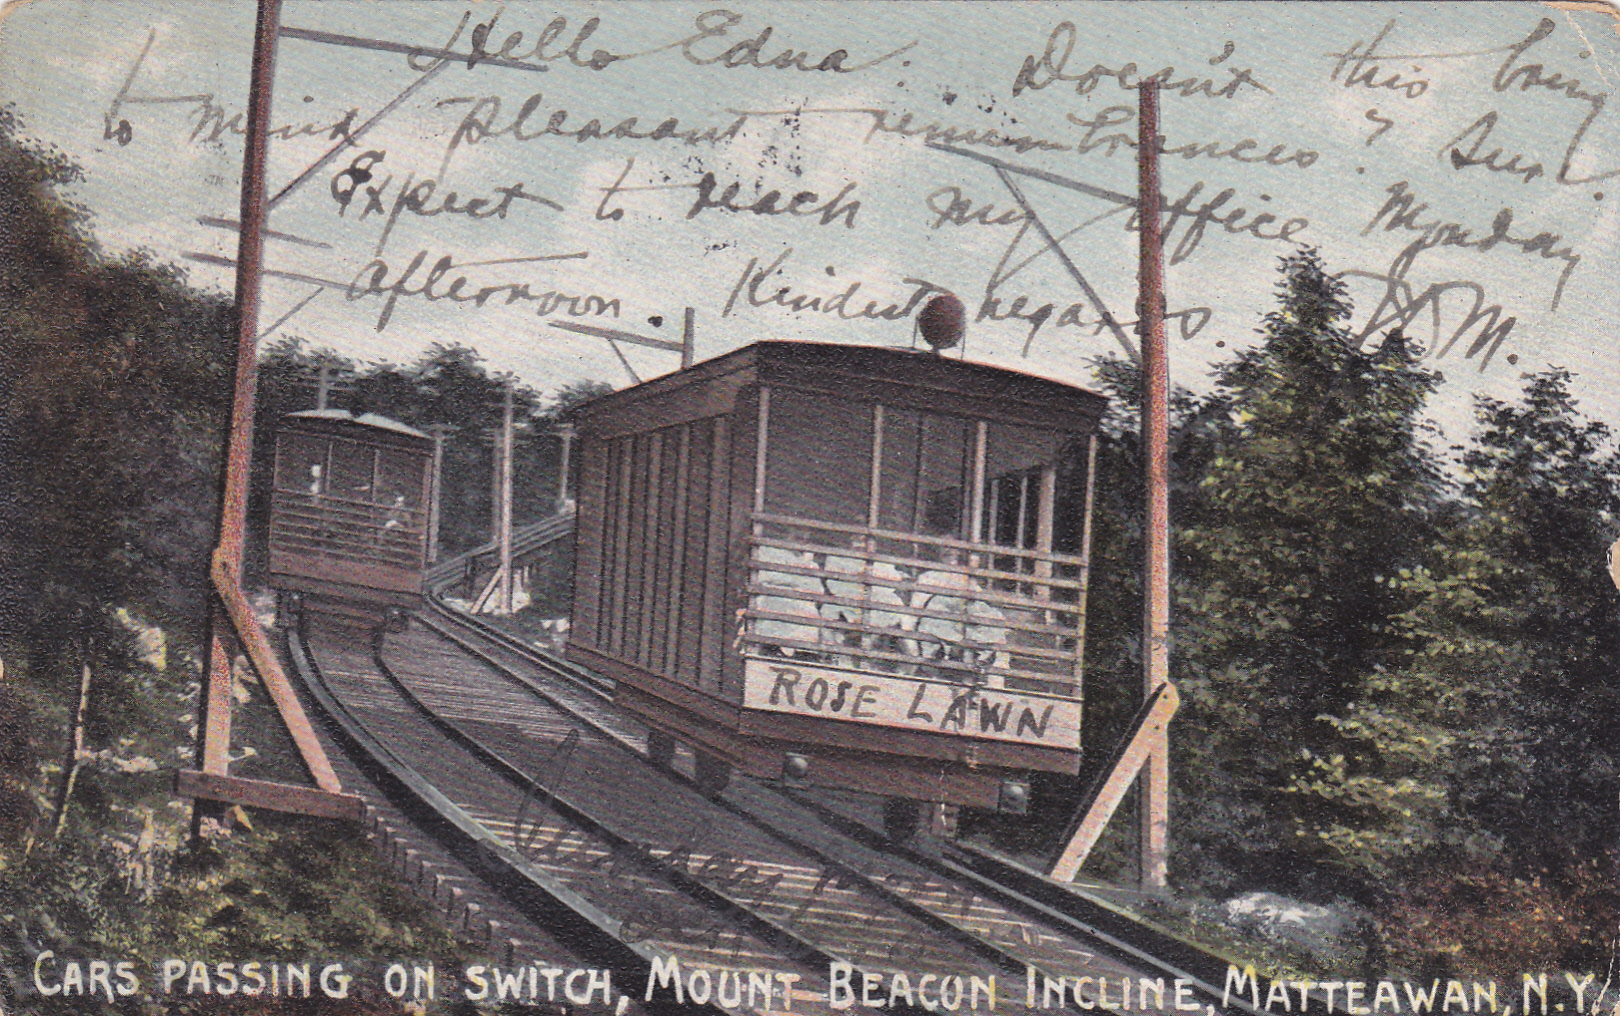 Hello Edna. Doesn't this bring
to mind pleasant remembrances? Sure.
Expect to reach my office Monday
afternoon. Kindest regards.
M.
ROSE LAWN
Sunday
CARS PASSING ON SWITCH, MOUNT BEACON INCLINE, MATTEAWAN, N.Y.